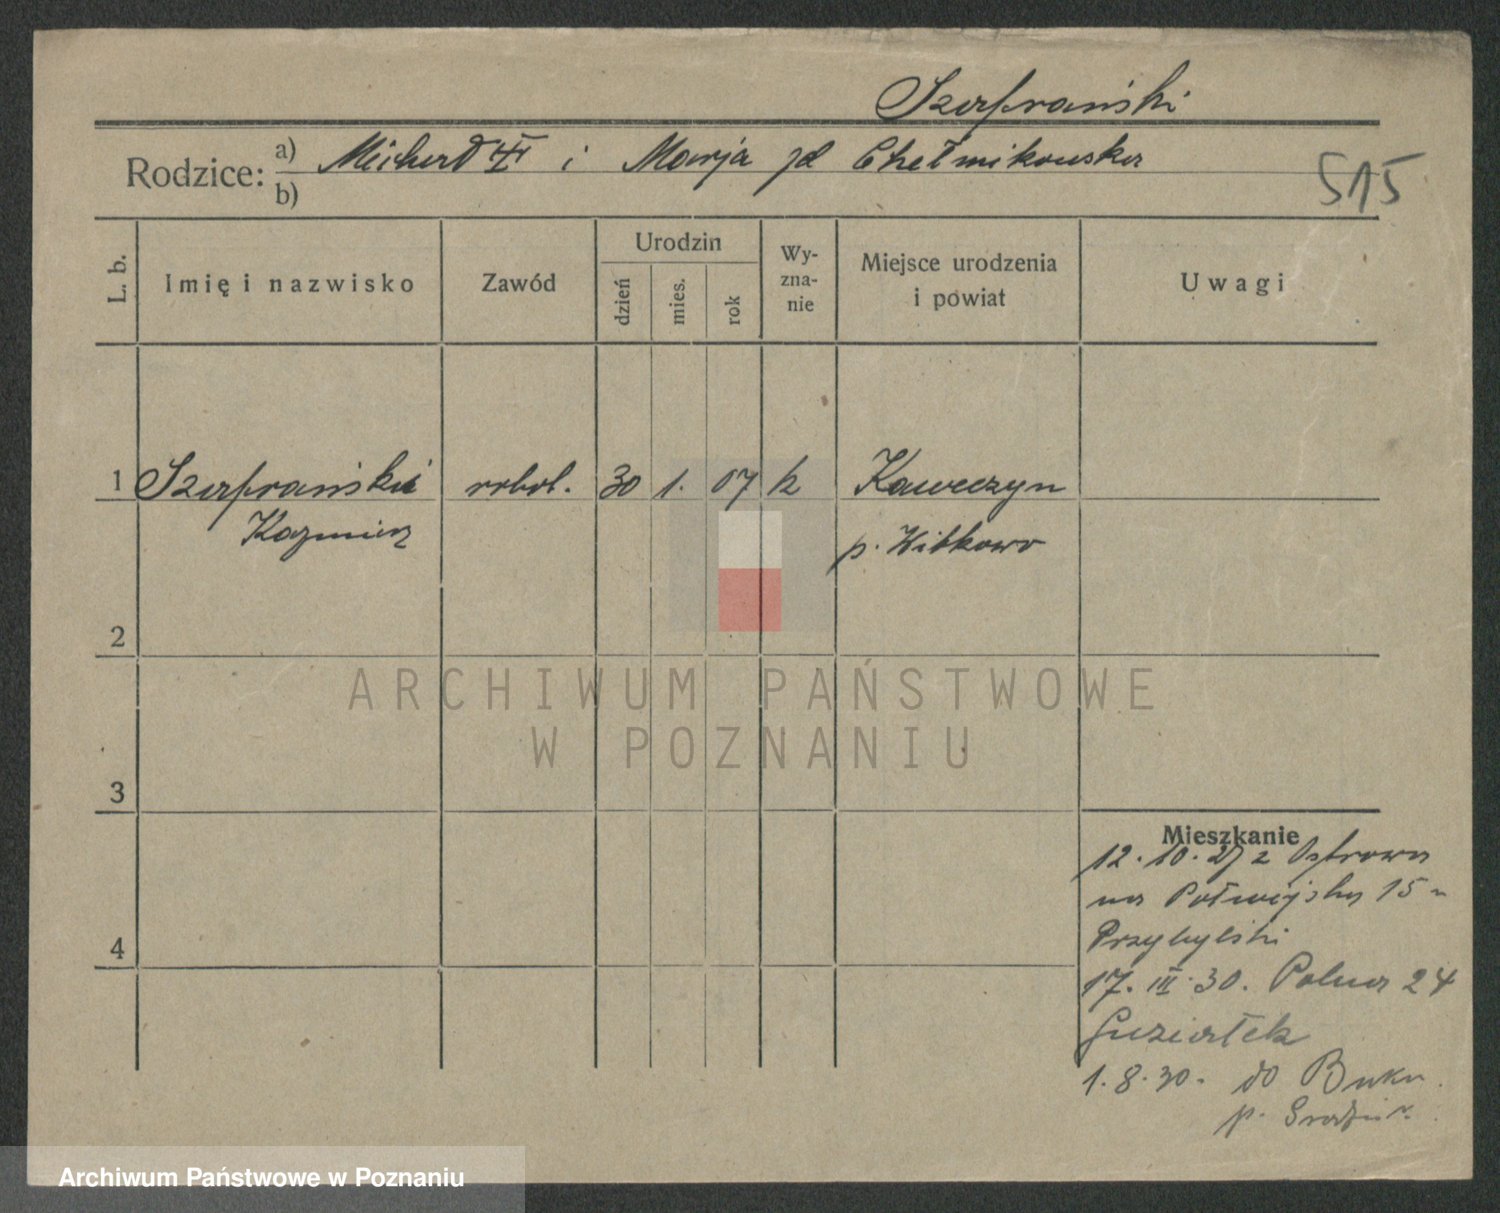 Szafrański
Rodzice: a) Michał i Marja zd Chełmikowska
b)
515
L. b.
Imię i nazwisko
Zawód
Urodzin
dzień
mies.
rok
Wy-
zna-
nie
Miejsce urodzenia
i powiat
Uwagi
1 Szafrański robot. 30 1. 07 k Kawęczyn
Kazmierz p. Witkowo
2
3
4
Mieszkanie
12.10.27 z Ostrowa
na Półwiejską 15
Przybylski
17. III. 30. Polna 24
Guziałek
1.8.30. do Buku
p.
ARCHIWUM PAŃSTWOWE
W POZNANIU
Archiwum Państwowe w Poznaniu